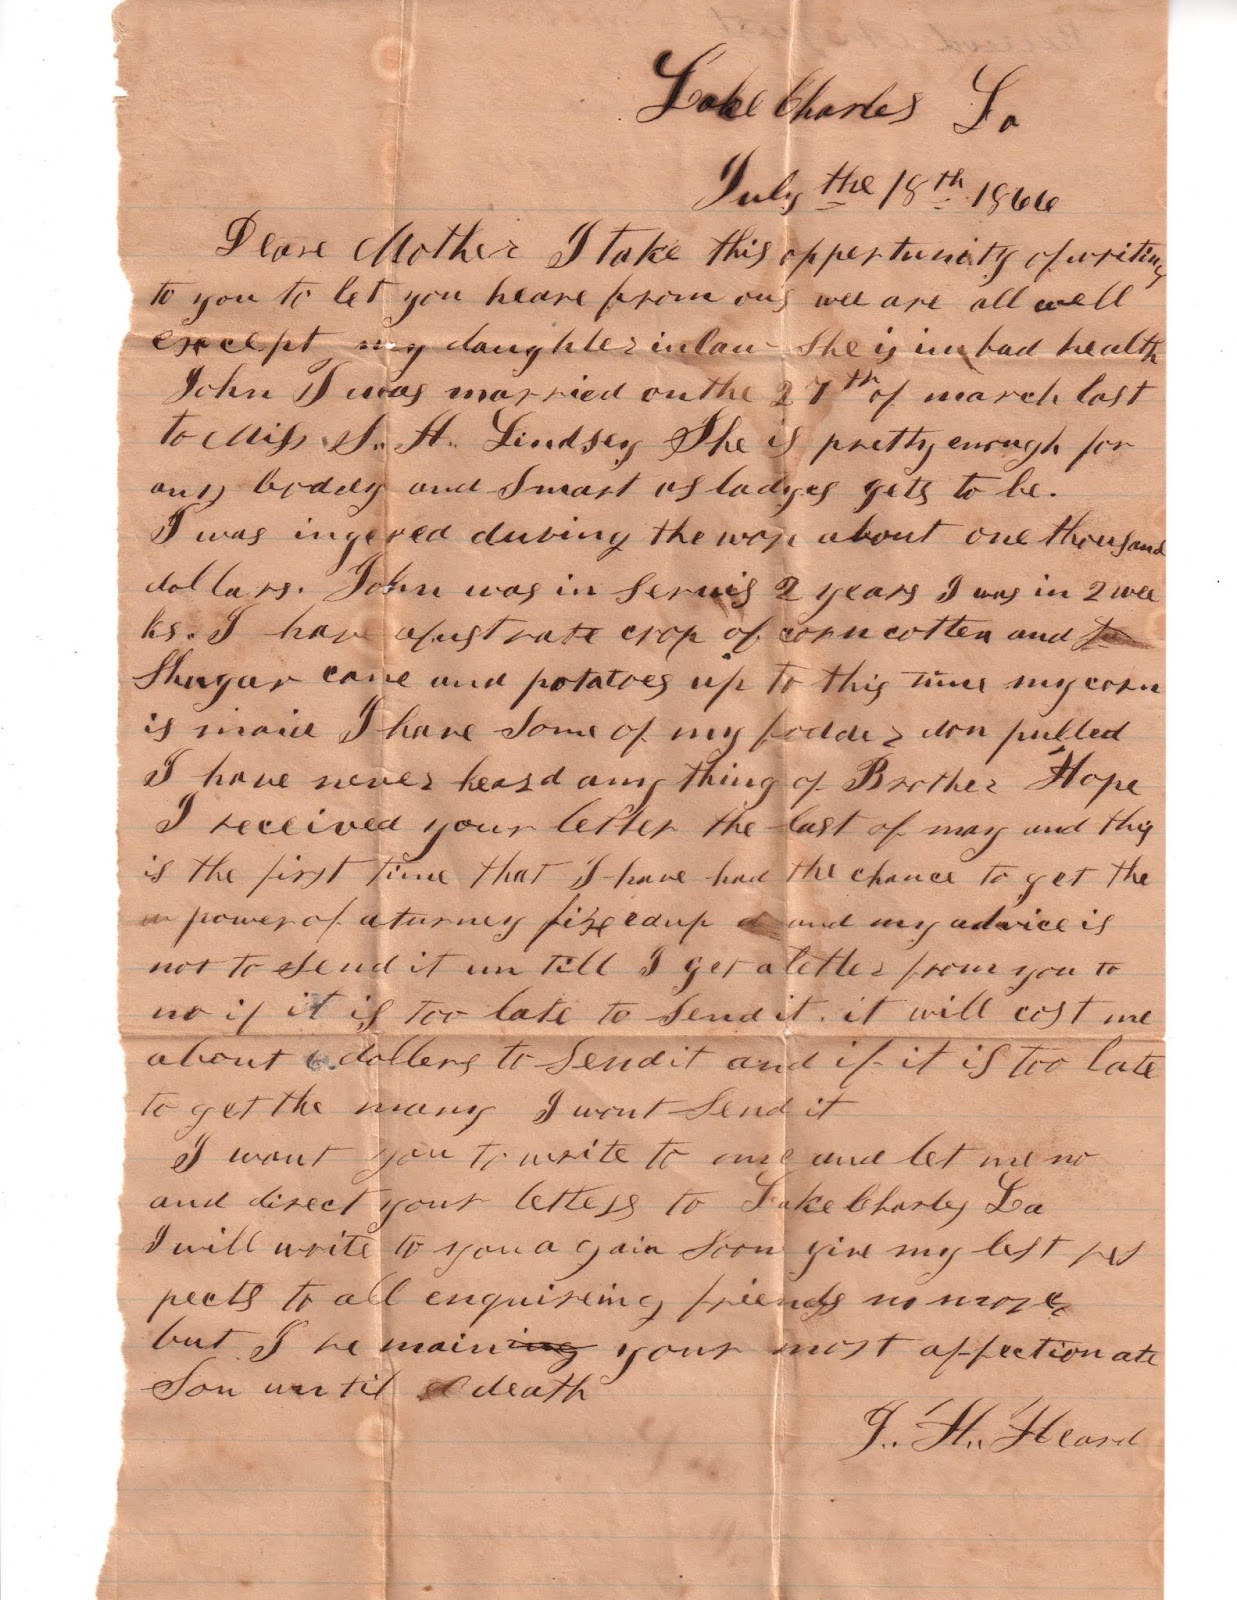 Lake Charles La
July the 18th 1866
Deare Mother I take this oppertunity of writing
to you to let you heare from ous wee are all well
except my daughter in law She is in bad health
John T was married on the 27th of march last
to Miss S. H. Lindsey She is pretty enough for
any boddy and Smart as ladyes gets to be.
I was ingered during the war about one thousand
dollars. John was in servis 2 years I was in 2 wee
ks. I have a fust rate crop of corn cotten and
Shugar cane and potatoes up to this time my corn
is maid I have Some of my fodder don pulled
I have never heard any thing of Brother Hope
I received your letter the last of may and this
is the first time that I have had the chance to get the
power of aturney fixed up and my advice is
not to Send it un till I get a letter from you to
no if it is too late to Send it. it will cost me
about 6 dollers to Send it and if it is too late
to get the many I wont Send it
I want you to write to me and let me no
and direct your letters to Lake Charles La
I will write to you a gain Soon give my best res
pects to all enquireing friends no more
but I re maining your most affectionate
Son until death
J. H. Heard